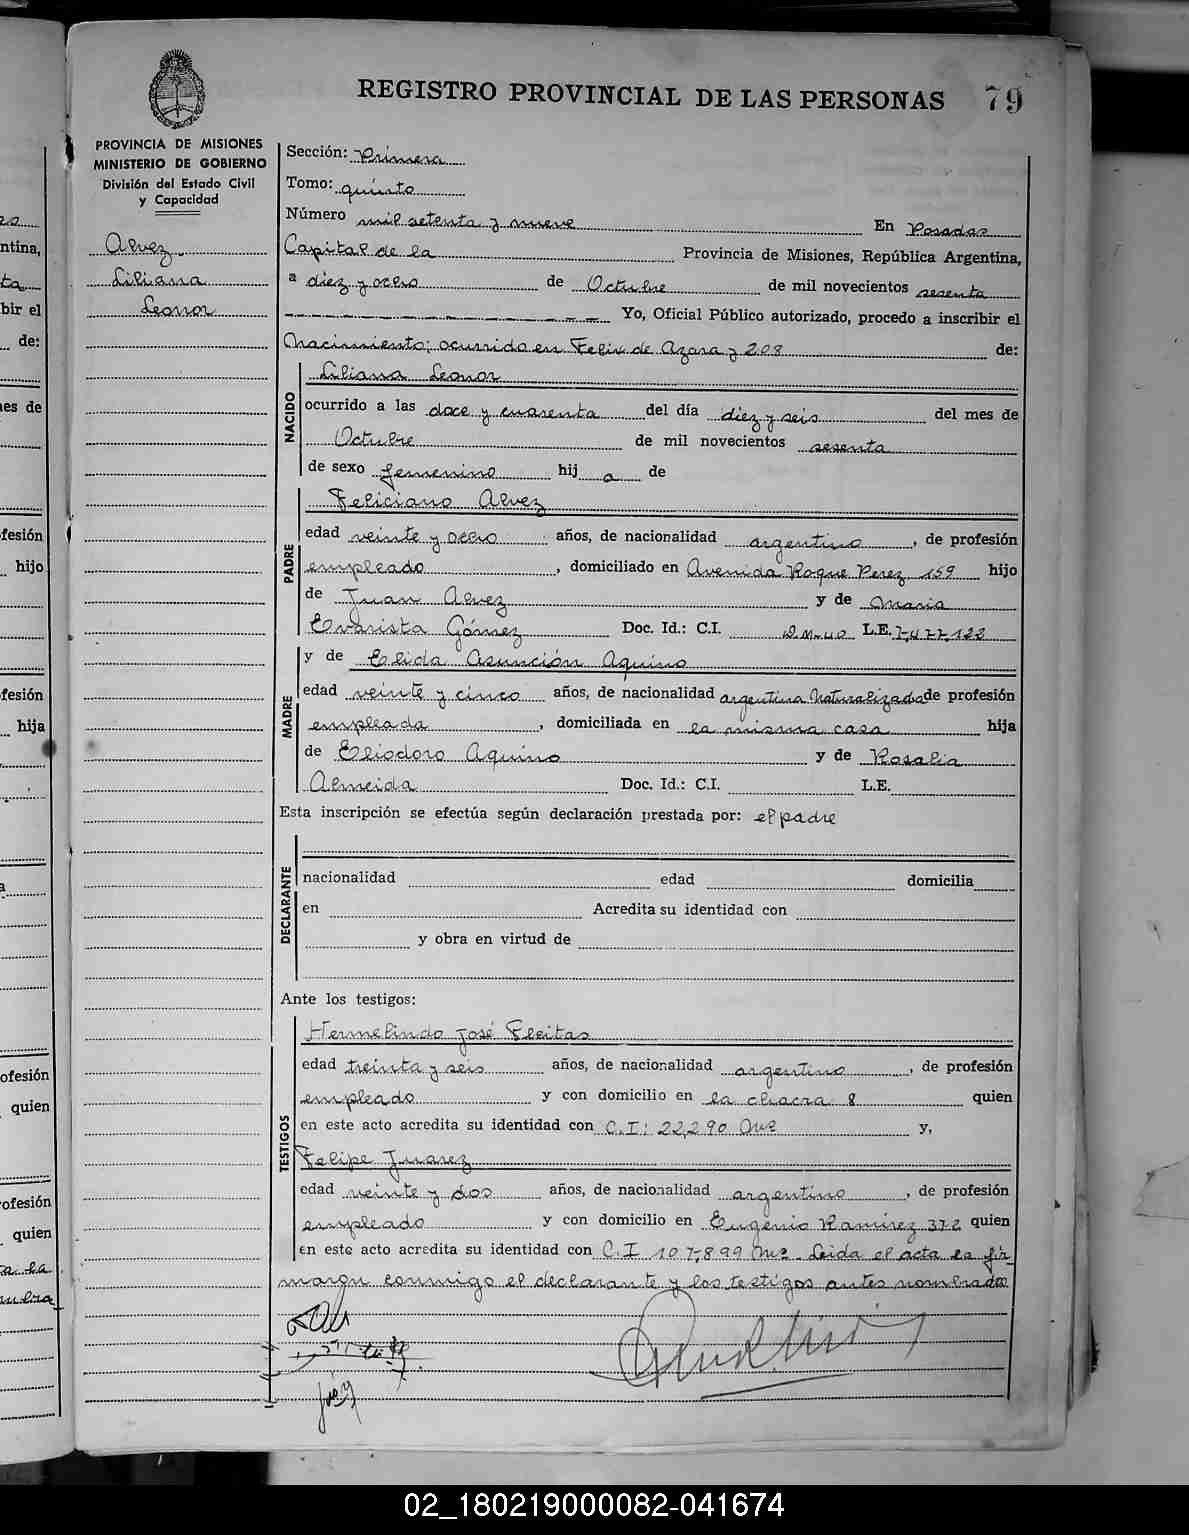 REGISTRO PROVINCIAL DE LAS PERSONAS 79
PROVINCIA DE MISIONES
MINISTERIO DE GOBIERNO
División del Estado Civil
y Capacidad
Alvez
Liliana
Leonor
Sección: Primera
Tomo: quinto
Número mil setenta y nueve En Posadas
Capital de la Provincia de Misiones, República Argentina,
a diez y ocho de Octubre de mil novecientos sesenta
Yo, Oficial Público autorizado, procedo a inscribir el
Nacimiento; ocurrido en Felix de Azara y 208 de:
NACIDO
Liliana Leonor
ocurrido a las doce y cuarenta del día diez y seis del mes de
Octubre de mil novecientos sesenta
de sexo femenino hij a de
PADRE
Feliciano Alvez
edad veinte y ocho años, de nacionalidad argentino, de profesión
empleado, domiciliado en Avenida Roque Perez 159 hijo
de Juan Alvez y de Maria
Evarista Gómez Doc. Id.: C.I. D.M. 40 L.E. 7,477,122
MADRE
y de Elida Asunción Aquino
edad veinte y cinco años, de nacionalidad argentina Naturalizada de profesión
empleada, domiciliada en la misma casa hija
de Eliodoro Aquino y de Rosalia
Almeida Doc. Id.: C.I. L.E.
Esta inscripción se efectúa según declaración prestada por: el padre
DECLARANTE
nacionalidad edad domicilia
en Acredita su identidad con
y obra en virtud de
Ante los testigos:
TESTIGOS
Hermelindo José Fleitas
edad treinta y seis años, de nacionalidad argentino, de profesión
empleado y con domicilio en la chacra 8 quien
en este acto acredita su identidad con C.I: 22,290 Mns y,
Felipe Juarez
edad veinte y dos años, de nacionalidad argentino, de profesión
empleado y con domicilio en Eugenio Ramirez 372 quien
en este acto acredita su identidad con C.I 107,899 Mns. Leida el acta la fir
maron conmigo el declarante y los testigos antes nombrados
02_180219000082-041674